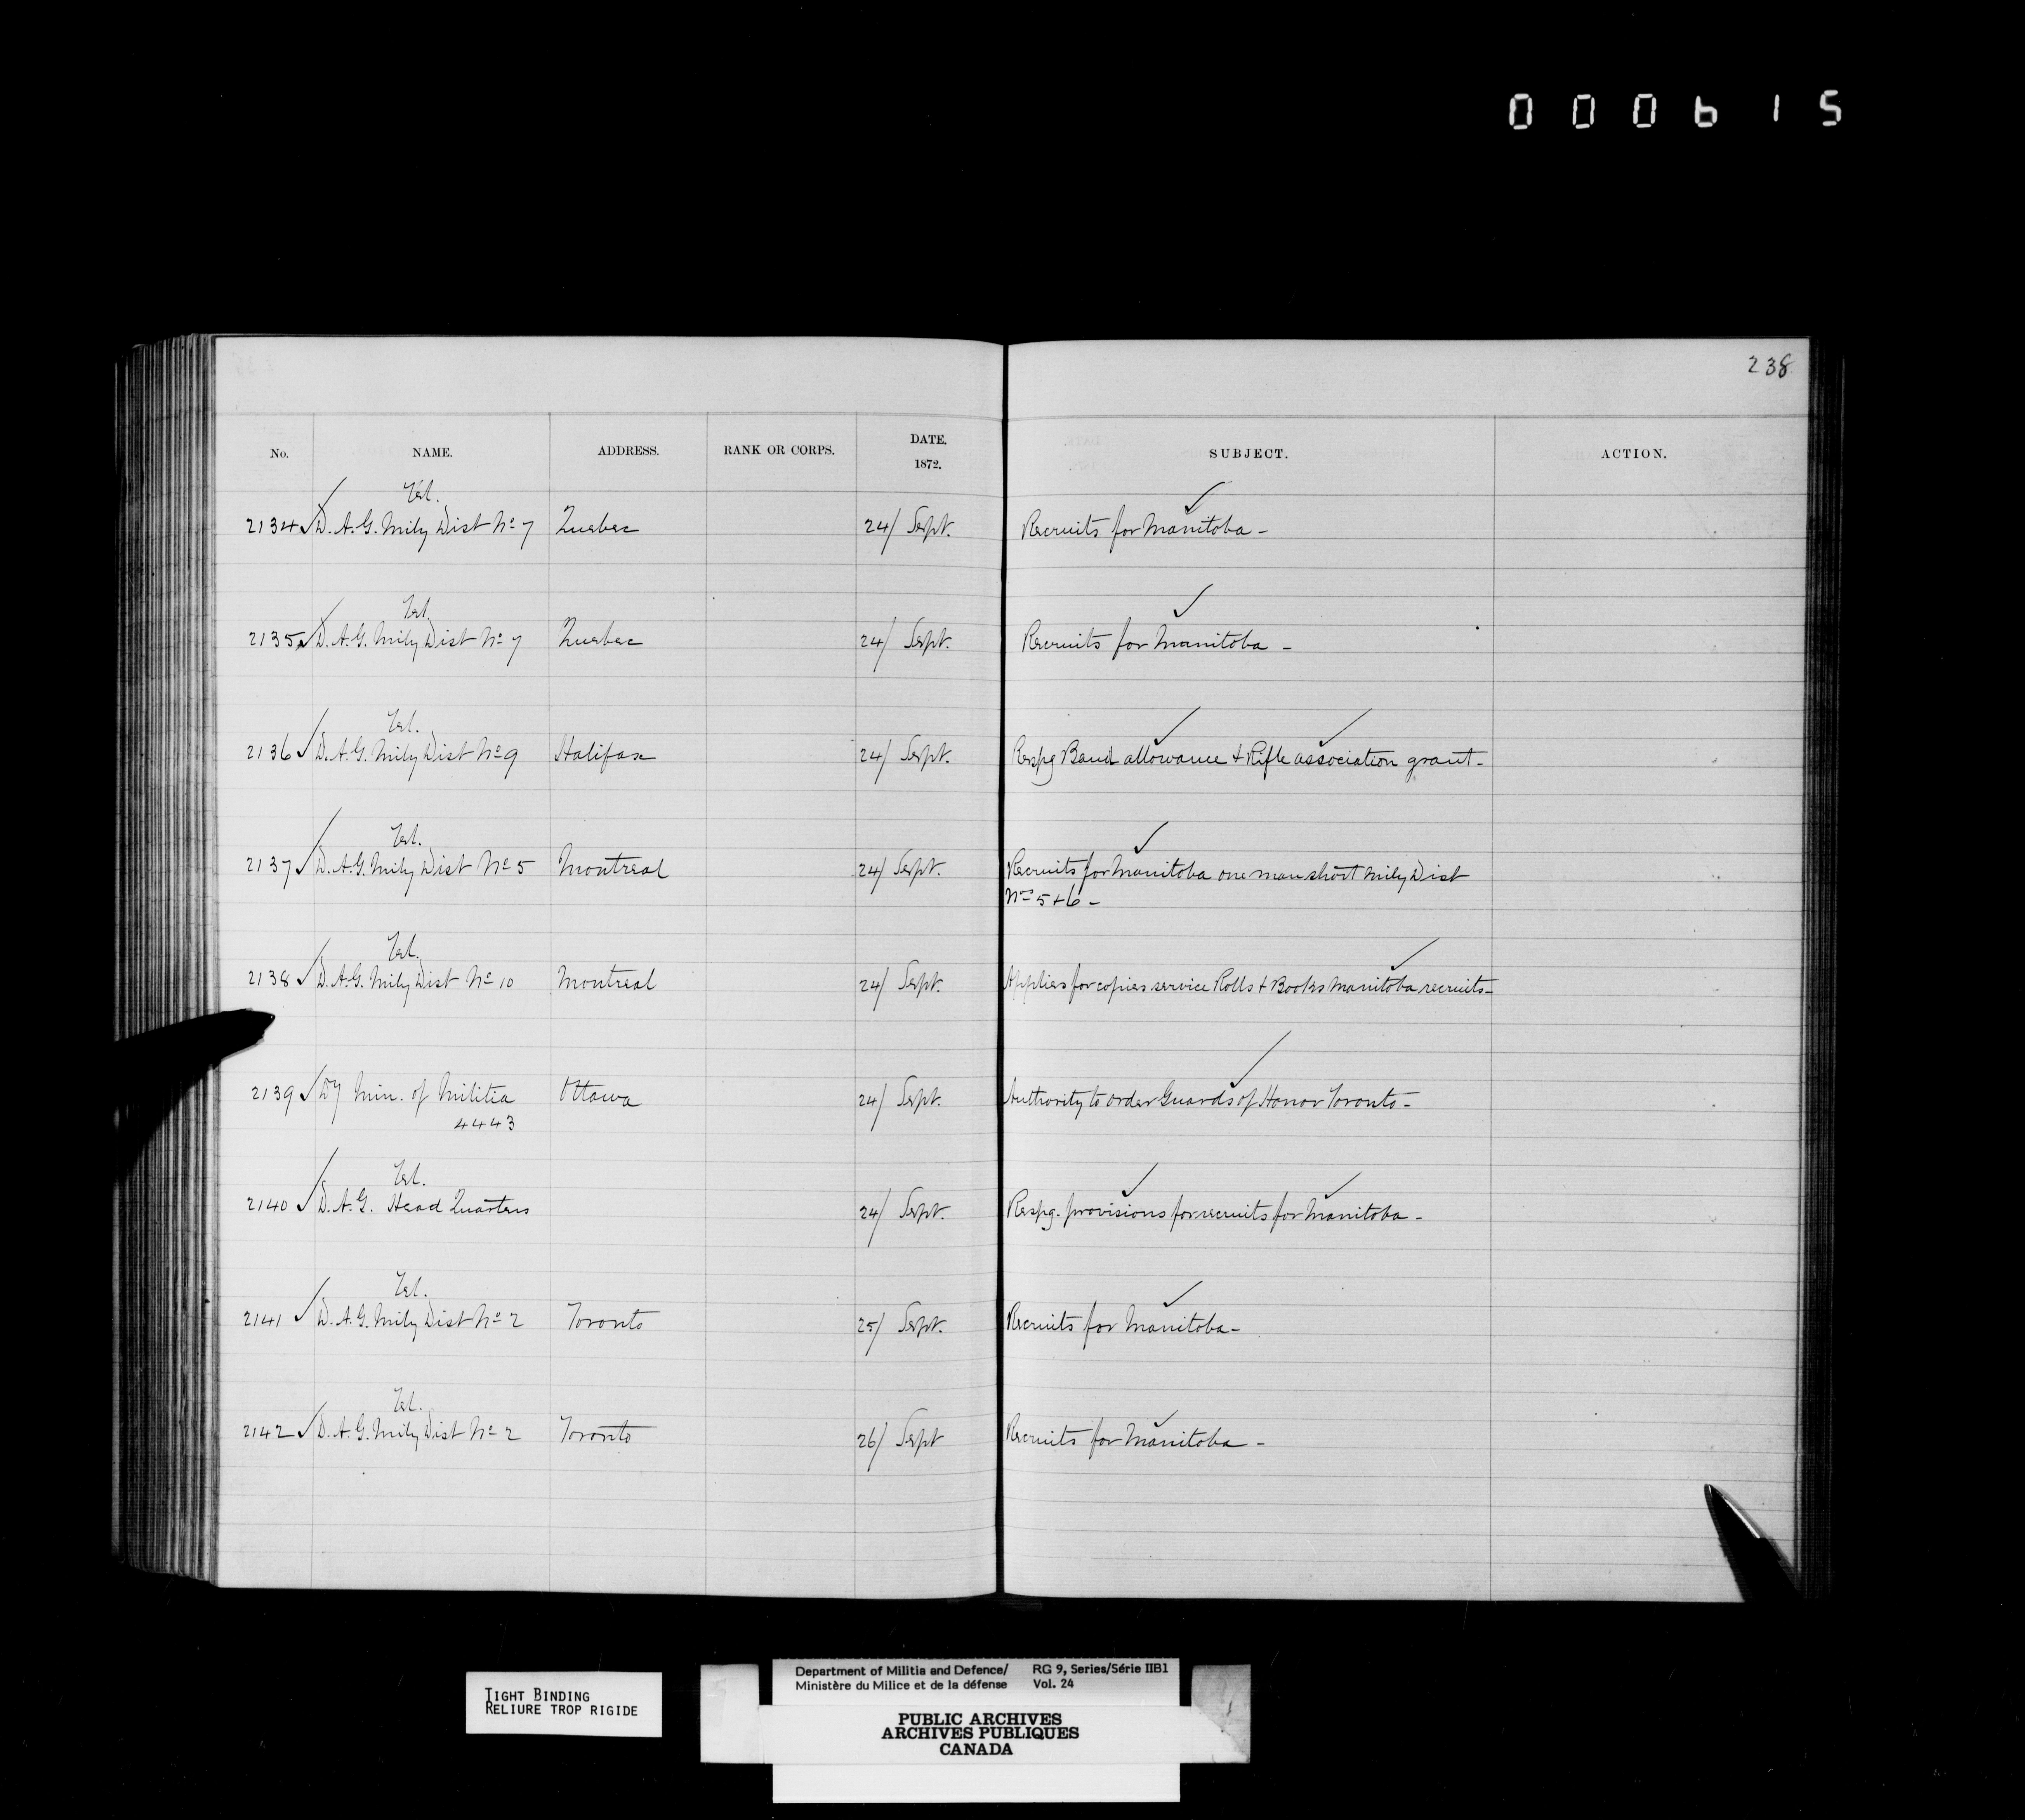 000615
238
No. NAME. ADDRESS. RANK OR CORPS. DATE. 1872. SUBJECT. ACTION.
Tel.
2134 D. A. G. Mily Dist No 7 Quebec 24/ Sept. Recruits for Manitoba -
Tel.
2135 D. A. G. Mily Dist No 7 Quebec 24/ Sept. Recruits for Manitoba -
Tel.
2136 D. A. G. Mily Dist No 9 Halifax 24/ Sept. Respg Band allowance & Rifle association grant -
Tel.
2137 D. A. G. Mily Dist No 5 Montreal 24/ Sept. Recruits for Manitoba one man short Mily Dist
Nos 5 & 6 -
Tel.
2138 D. A. G. Mily Dist No 10 Montreal 24/ Sept. Applies for copies service Rolls & Books Manitoba recruits -
2139 Dy Min. of Militia Ottawa 24/ Sept. Authority to order Guards of Honor Toronto -
4443
Tel.
2140 D. A. G. Head Quarters 24/ Sept. Respg. provisions for recruits for Manitoba -
Tel.
2141 D. A. G. Mily Dist No 2 Toronto 25/ Sept. Recruits for Manitoba -
Tel.
2142 D. A. G. Mily Dist No 2 Toronto 26/ Sept Recruits for Manitoba -
TIGHT BINDING
RELIURE TROP RIGIDE
Department of Militia and Defence/ RG 9, Series/Série IIB1
Ministère du Milice et de la défense Vol. 24
PUBLIC ARCHIVES
ARCHIVES PUBLIQUES
CANADA